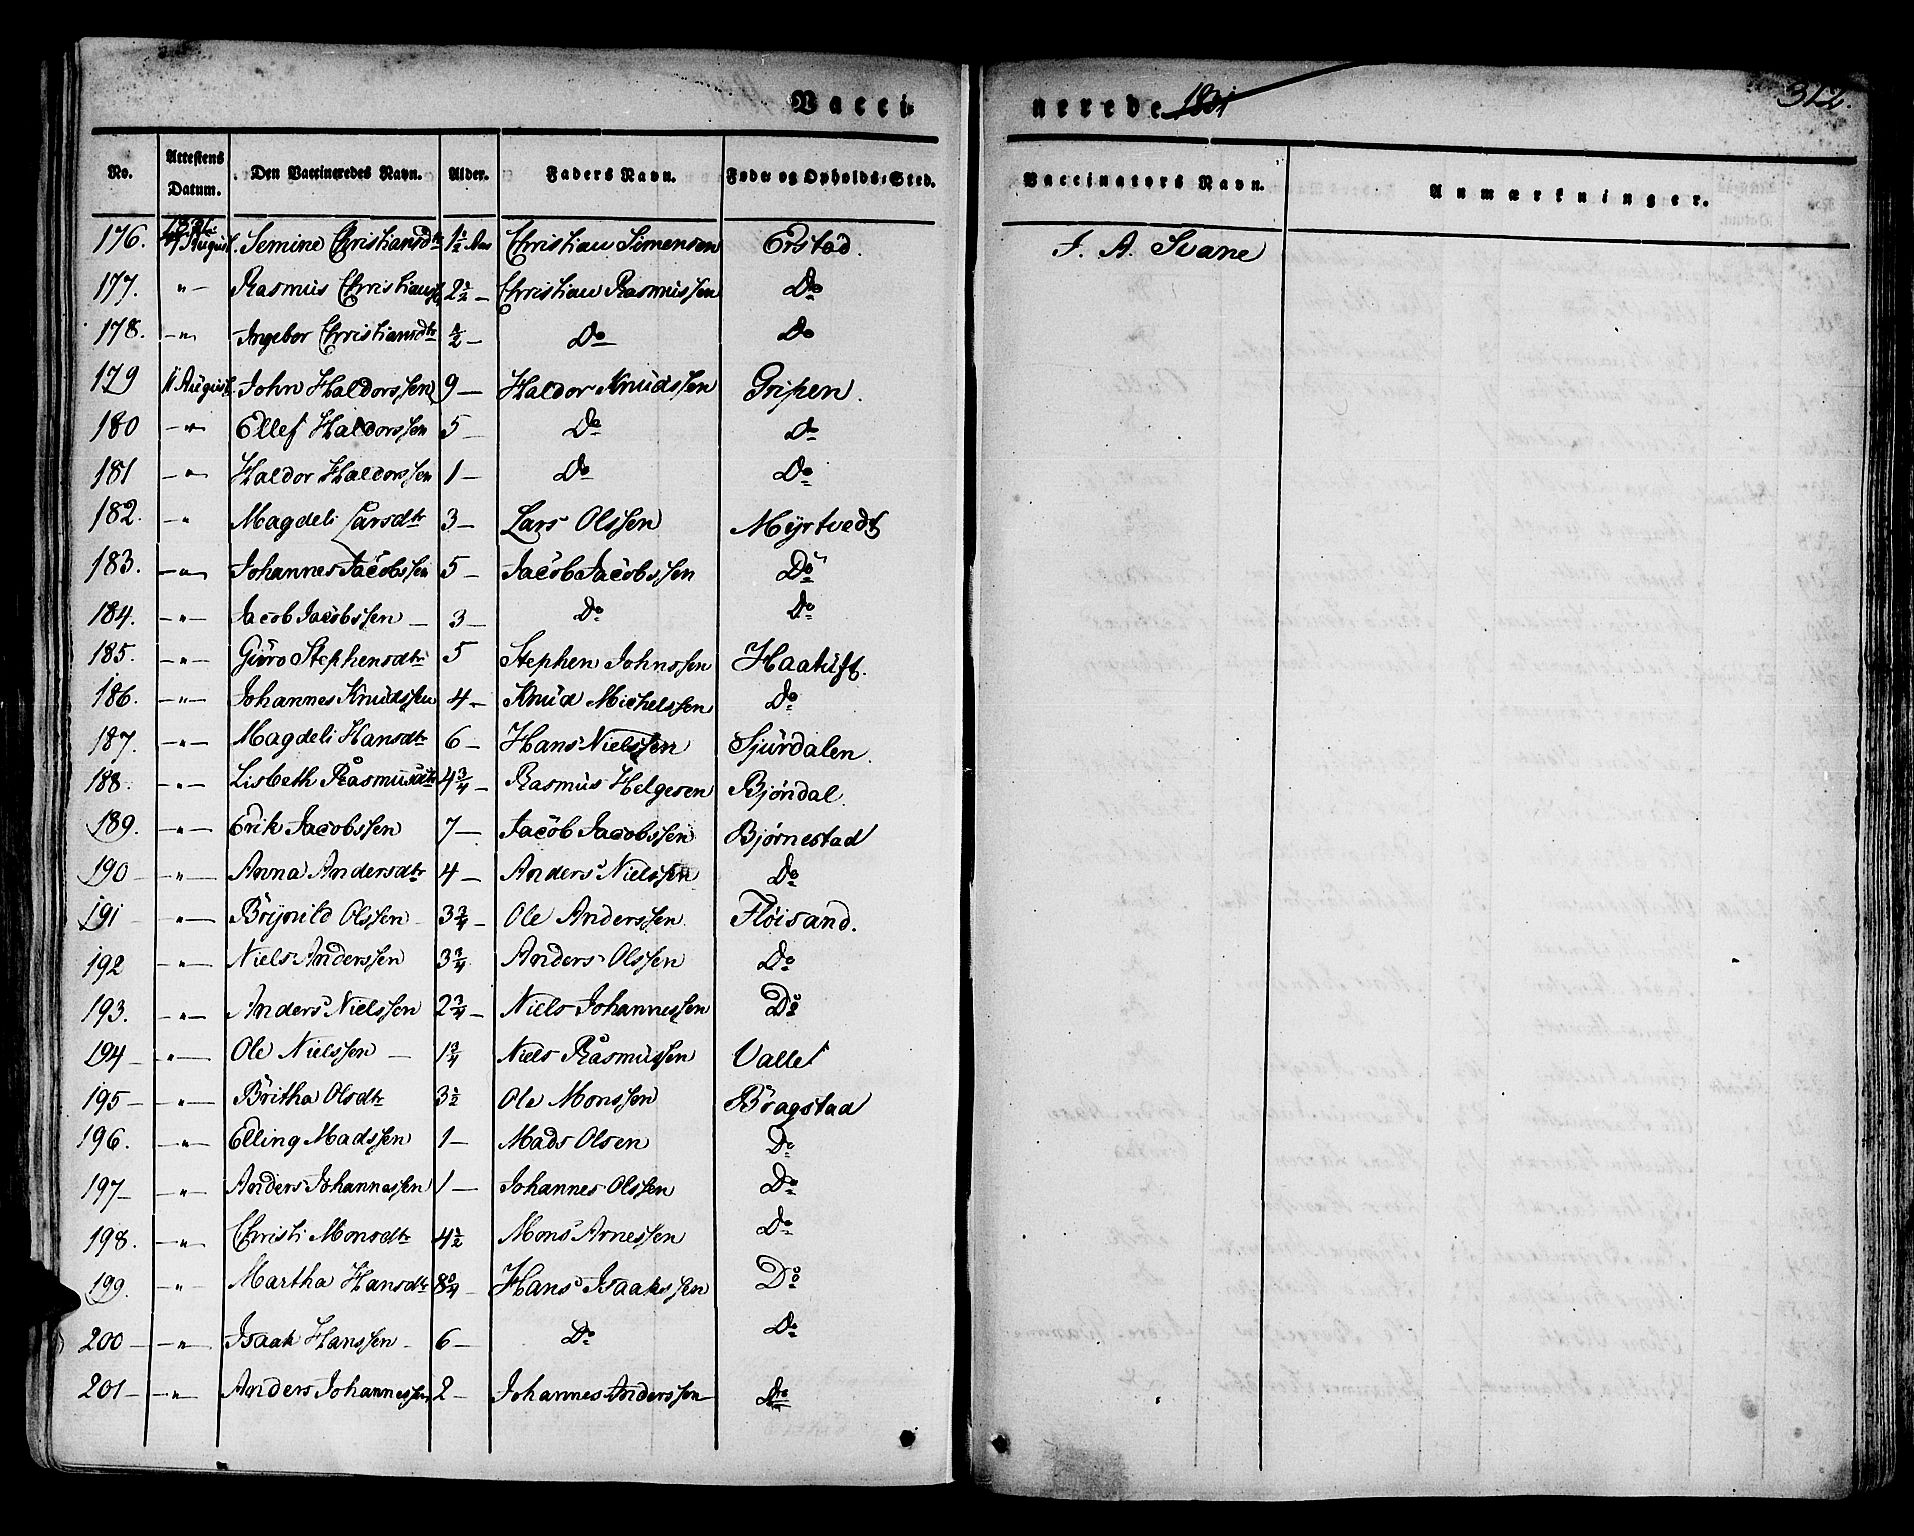 Vacci nerede 1831
312.
No. Attestens Datum. Den Vaccineredes Navn. Alder. Faders Navn. Føde og Opholds-Sted. Vaccinators Navn. Anmærkninger.
176. August. Semine Christiansdtr 1 1/2 Aar Christian Simensen Erstad. J. A. Svane
177. " Rasmus Christians 2 1/2 – Christian Rasmussen Do
178. –"– Ingebor Christiansdtr 1/2 – Do Do
179 11 August. John Haldorssen 9 – Haldor Knudssen Gripen.
180 –"– Ellef Haldorssen 5 – Do Do
181 –"– Haldor Haldorssen 1 – Do Do
182. –" Magdeli Larsdtr 3 – Lars Olssen Myrtvedt
183. –"– Johannes Jacobssen 5 – Jacob Jacobssen Do
184. –"– Jacob Jacobssen – 3 – Do Do
185. –"– Guro Stephensdtr 5 Stephen Johnssen Haatuft.
186. –"– Johannes Knudssen 4 – Knud Michelssen Do
187. –"– Magdeli Hansdtr 6 – Hans Nielssen Sjurdalen.
188. –"– Lisbeth Rasmusdtr 4 3/4 – Rasmus Helgesen Bjørndal.
189. –"– Erik Jacobssen 7 – Jacob Jacobssen Bjørnestad
190 – –"– Anna Andersdtr 4 – Anders Nielssen Do
191 –"– Brynild Olssen 3 3/4 – Ole Anderssen Fløisand.
192 –"– Niels Anderssen 3 3/4 Anders Olssen Do
193. –"– Anders Nielssen 2 3/4 – Niels Johannessen Do
194 – –"– Ole Nielssen – 1 3/4 Niels Rasmussen Valle
195 – –"– Britha Olsdtr 3 1/2 Ole Monssen Bragstad
196. –"– Elling Madssen 1 – Mads Olsen Do
197 – –"– Anders Johannessen 1 – Johannes Olssen Do
198. –"– Christi Monsdtr 4 1/2 Mons Arnessen Do
199. " – Martha Hansdtr 8 3/4 – Hans Isaakssen Do
200 – –"– Isaak Hanssen – 6 – Do Do
201 – –"– Anders Johannessen 2 – Johannes Anderssen Do